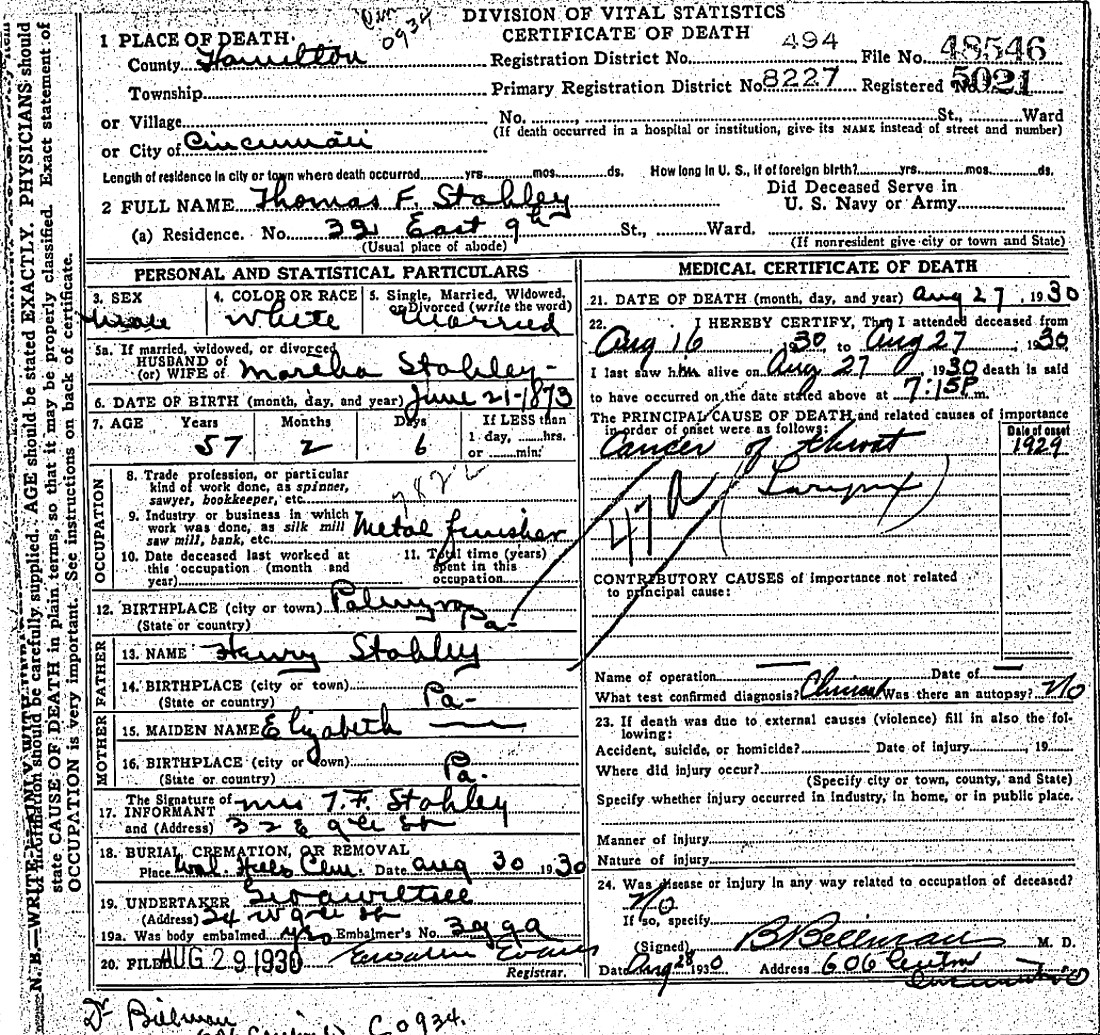 DIVISION OF VITAL STATISTICS
CERTIFICATE OF DEATH
0934
1 PLACE OF DEATH
County Hamilton
Registration District No. 494 File No. 48546
Township
Primary Registration District No. 8227 Registered No. 5021
or Village
No. , St., Ward
(If death occurred in a hospital or institution, give its NAME instead of street and number)
or City of Cincinnati
Length of residence in city or town where death occurred yrs. mos. ds. How long in U. S., if of foreign birth? yrs. mos. ds.
2 FULL NAME Thomas F. Stahley
Did Deceased Serve in
U. S. Navy or Army
(a) Residence. No. 32 East 9th St., Ward.
(Usual place of abode) (If nonresident give city or town and State)
PERSONAL AND STATISTICAL PARTICULARS
3. SEX male
4. COLOR OR RACE White
5. Single, Married, Widowed, or Divorced (write the word) Married
5a. If married, widowed, or divorced
HUSBAND of
(or) WIFE of Martha Stahley
6. DATE OF BIRTH (month, day, and year) June 21-1873
7. AGE Years Months Days If LESS than
57 2 6 1 day, hrs.
or min.
OCCUPATION
8. Trade profession, or particular
kind of work done, as spinner,
sawyer, bookkeeper, etc.
9. Industry or business in which
work was done, as silk mill
saw mill, bank, etc. Metal finisher
10. Date deceased last worked at
this occupation (month and
year)
11. Total time (years)
spent in this
occupation
12. BIRTHPLACE (city or town) Palmyra
(State or country) Pa-
FATHER
13. NAME Henry Stahley
14. BIRTHPLACE (city or town)
(State or country) Pa-
MOTHER
15. MAIDEN NAME Elizabeth
16. BIRTHPLACE (city or town)
(State or country) Pa.
17. The Signature of
INFORMANT Mrs T. F. Stahley
and (Address) 32 E 9th St
18. BURIAL, CREMATION, OR REMOVAL
Place Wal. Hills Cem. Date Aug 30 1930
19. UNDERTAKER
(Address) 24 W 9th St
19a. Was body embalmed yes Embalmer's No.
20. FILED AUG 29 1930 Evans
Registrar.
MEDICAL CERTIFICATE OF DEATH
21. DATE OF DEATH (month, day, and year) Aug 27, 1930
22. I HEREBY CERTIFY, That I attended deceased from
Aug 16 1930 to Aug 27, 1930
I last saw him alive on Aug 27 1930 death is said
to have occurred on the date stated above at 7:15P m.
The PRINCIPAL CAUSE OF DEATH and related causes of importance
in order of onset were as follows:
Date of onset
Cancer of throat 1929
Larynx
CONTRIBUTORY CAUSES of importance not related
to principal cause:
Name of operation Date of
What test confirmed diagnosis? Clinical Was there an autopsy? No
23. If death was due to external causes (violence) fill in also the fol-
lowing:
Accident, suicide, or homicide? Date of injury , 19
Where did injury occur?
(Specify city or town, county, and State)
Specify whether injury occurred in industry, in home, or in public place.
Manner of injury
Nature of injury
24. Was disease or injury in any way related to occupation of deceased?
No
If so, specify
(Signed) M. D.
Date Aug 28 1930 Address 606
N. B.—WRITE PLAINLY WITH
should be carefully supplied. AGE should be stated EXACTLY. PHYSICIANS should
state CAUSE OF DEATH in plain terms, so that it may be properly classified. Exact statement of
OCCUPATION is very important. See instructions on back of certificate.
Dr
C0934.